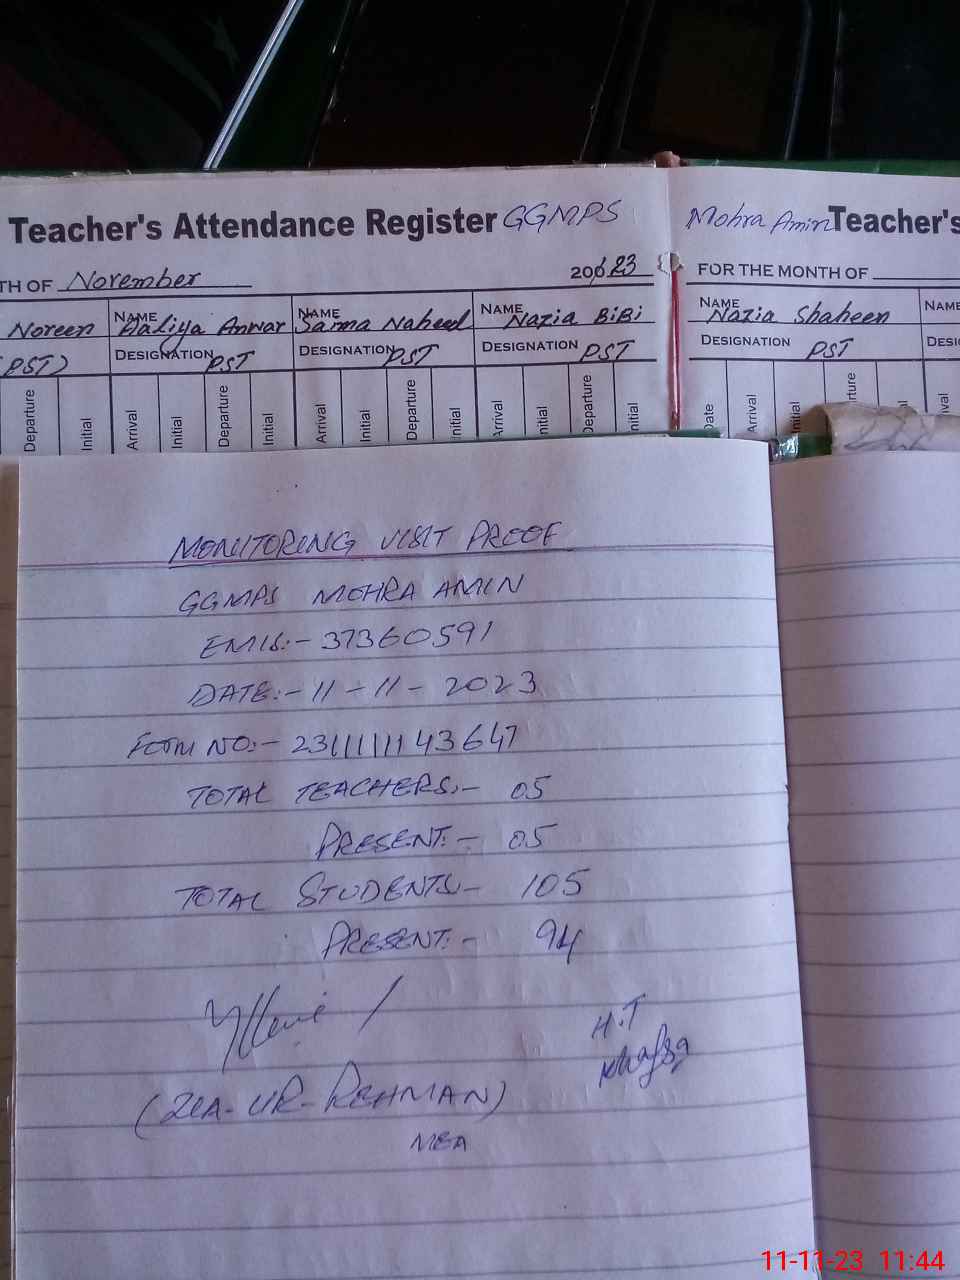 Teacher's Attendance Register GGMPS
TH OF November 20 23
Noreen
(PST)
NAME Aaliya Anwar
DESIGNATION PST
NAME Sarma Naheed
DESIGNATION PST
NAME Nazia BiBi
DESIGNATION PST
Departure Initial Arrival Initial Departure Initial Arrival Initial Departure Initial Arrival Initial Departure Initial
Mohra Amin Teacher's
FOR THE MONTH OF
NAME Nazia Shaheen
DESIGNATION PST
NAME
DESI
Date Arrival Initial rture ival
MONITORING VISIT PROOF
GGMPS MOHRA AMIN
EMIS:- 37360591
DATE:- 11-11-2023
FORM NO:- 231111143647
TOTAL TEACHERS:- 05
PRESENT:- 05
TOTAL STUDENTS- 105
PRESENT:- 94
H.T
(ZIA-UR-REHMAN)
MEA
11-11-23 11:44